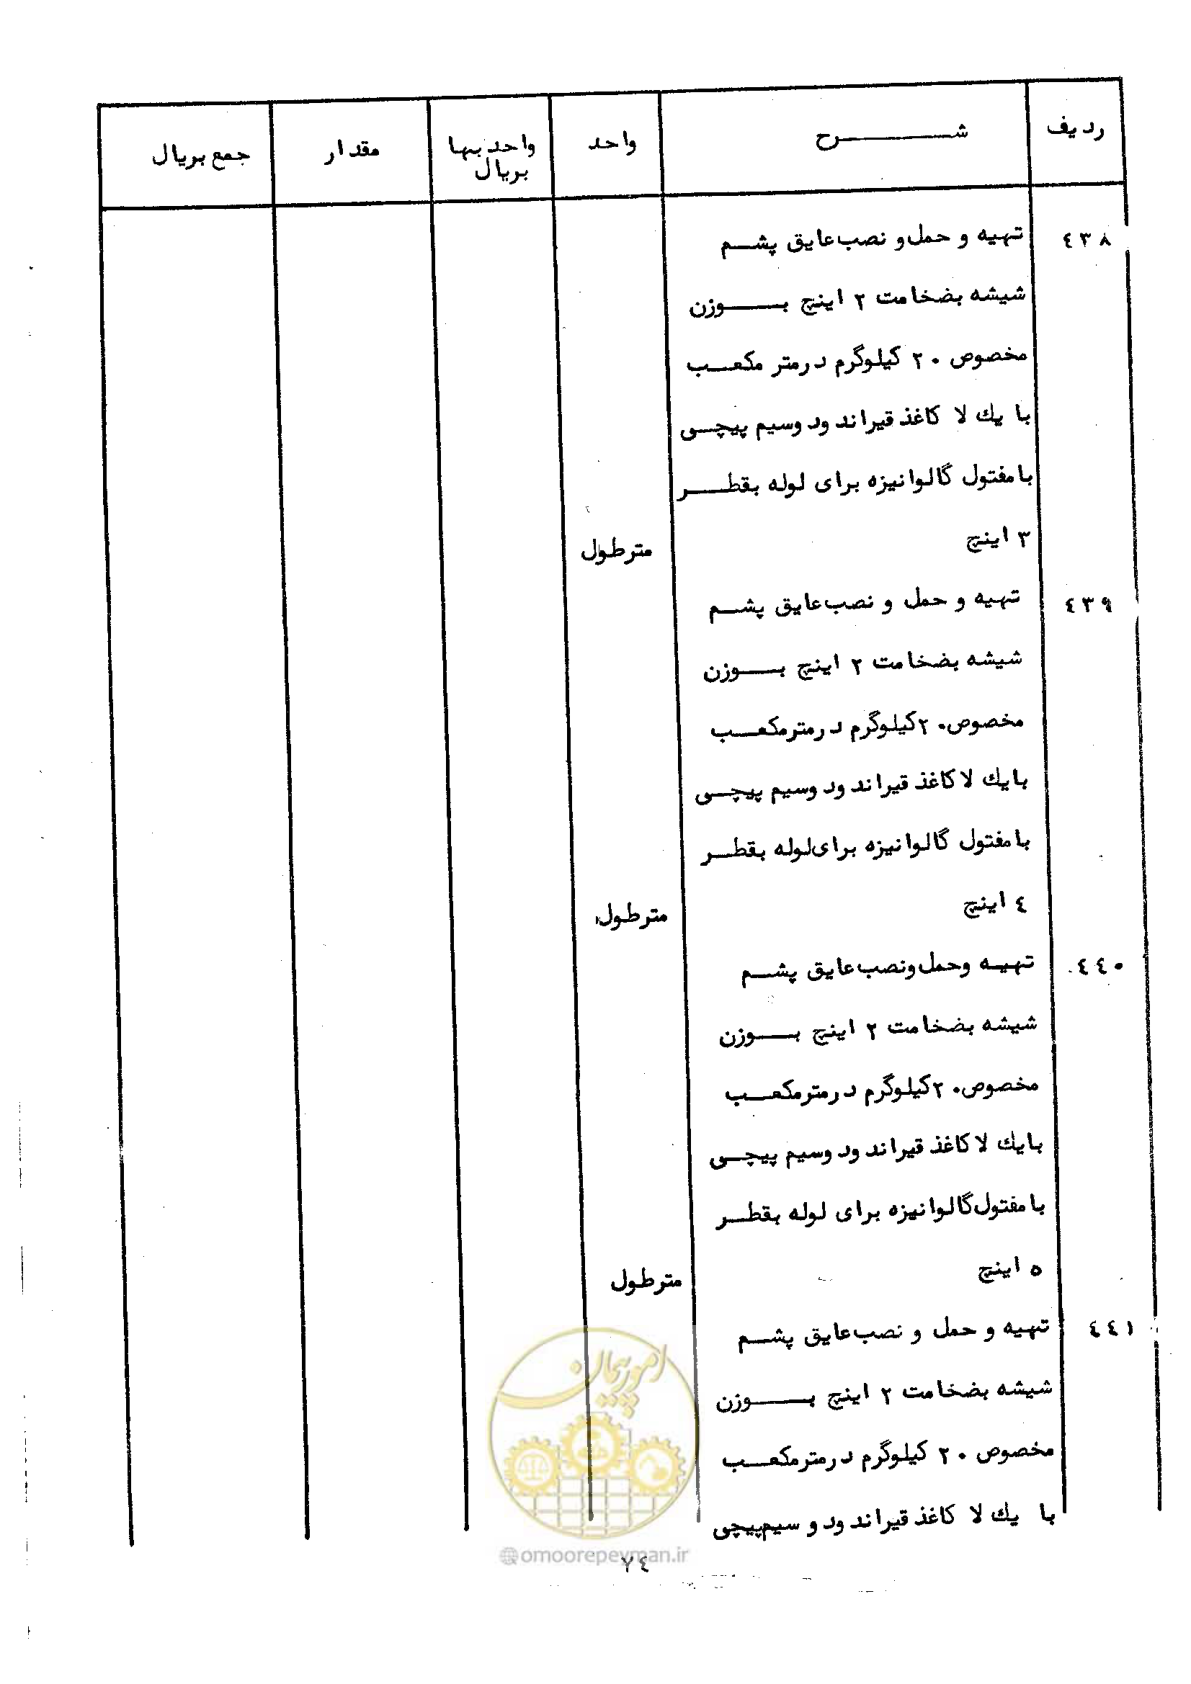 ردیف شرح واحد واحد بها بریال مقدار جمع بریال
٤٣٨ تهیه و حمل و نصب عایق پشم
شیشه بضخامت ٢ اینچ بوزن
مخصوص ٢٠ کیلوگرم درمتر مکعب
با یك لا کاغذ قیراندود وسیم پیچی
با مفتول گالوانیزه برای لوله بقطر
٣ اینچ مترطول
٤٣٩ تهیه و حمل و نصب عایق پشم
شیشه بضخامت ٢ اینچ بوزن
مخصوص ٢٠ کیلوگرم درمترمکعب
بایك لا کاغذ قیراندود وسیم پیچی
با مفتول گالوانیزه برای لوله بقطر
٤ اینچ مترطول
٤٤٠ تهیه وحمل ونصب عایق پشم
شیشه بضخامت ٢ اینچ بوزن
مخصوص ٢٠ کیلوگرم درمترمکعب
بایك لا کاغذ قیراندود وسیم پیچی
با مفتول گالوانیزه برای لوله بقطر
٥ اینچ مترطول
٤٤١ تهیه و حمل و نصب عایق پشم
شیشه بضخامت ٢ اینچ بوزن
مخصوص ٢٠ کیلوگرم درمترمکعب
با یك لا کاغذ قیراندود و سیم پیچی
امور پیمان
@omoorepeyman.ir
٧٤